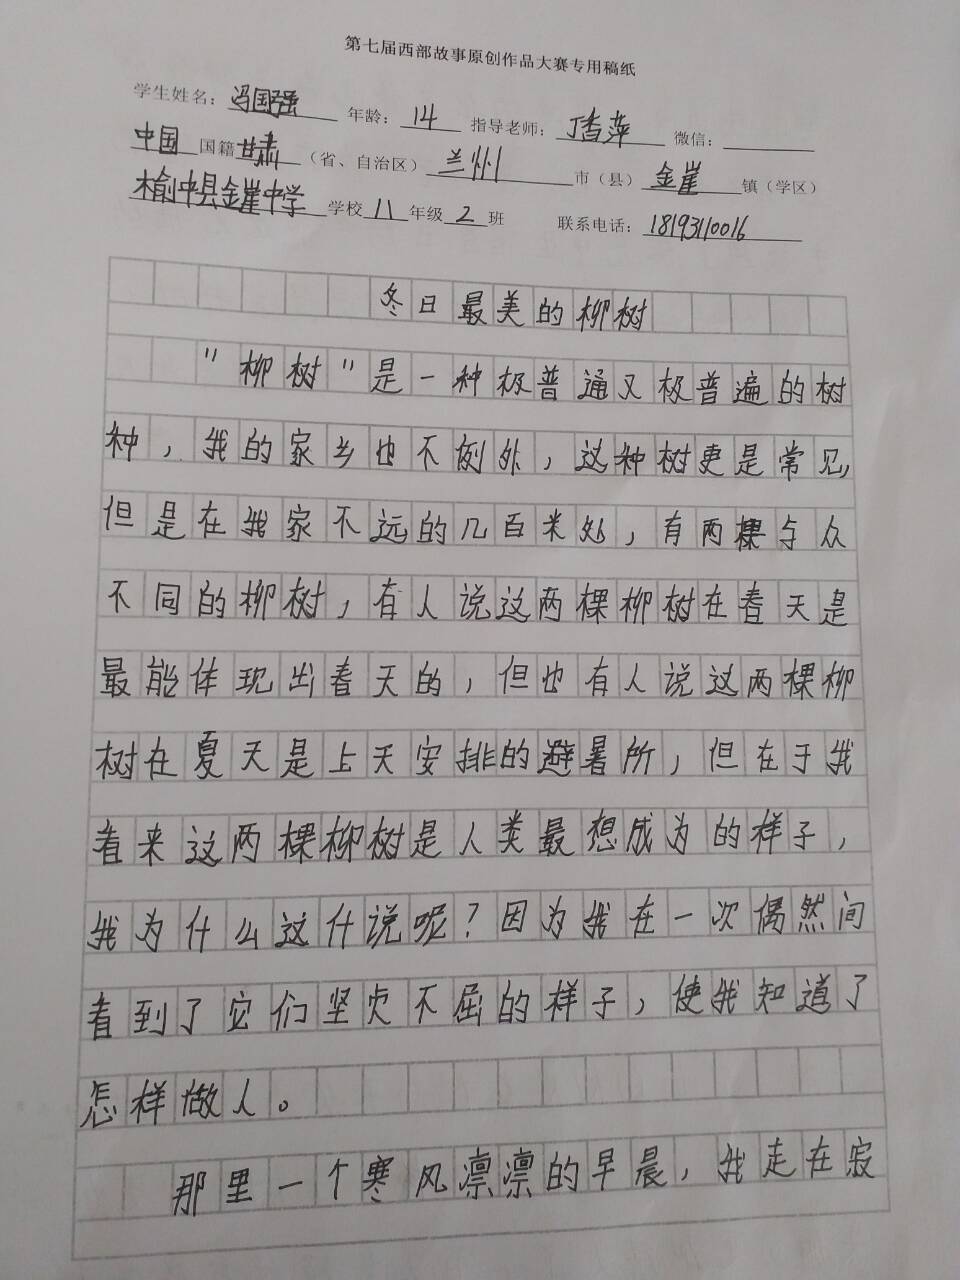 第七届西部故事原创作品大赛专用稿纸
学生姓名：冯国强 年龄：14 指导老师：丁香萍 微信：
中国 国籍 甘肃（省、自治区）兰州 市（县）金崖 镇（学区）
榆中县金崖中学 学校 八 年级 2 班 联系电话：18193110016
冬日最美的柳树
"柳树"是一种极普通又极普遍的树
种，我的家乡也不例外，这种树更是常见，
但是在我家不远的几百米处，有两棵与众
不同的柳树，有人说这两棵柳树在春天是
最能体现出春天的，但也有人说这两棵柳
树在夏天是上天安排的避暑所，但在于我
看来这两棵柳树是人类最想成为的样子，
我为什么这什说呢？因为我在一次偶然间
看到了它们坚贞不屈的样子，使我知道了
怎样做人。
那里一个寒风凛凛的早晨，我走在寂